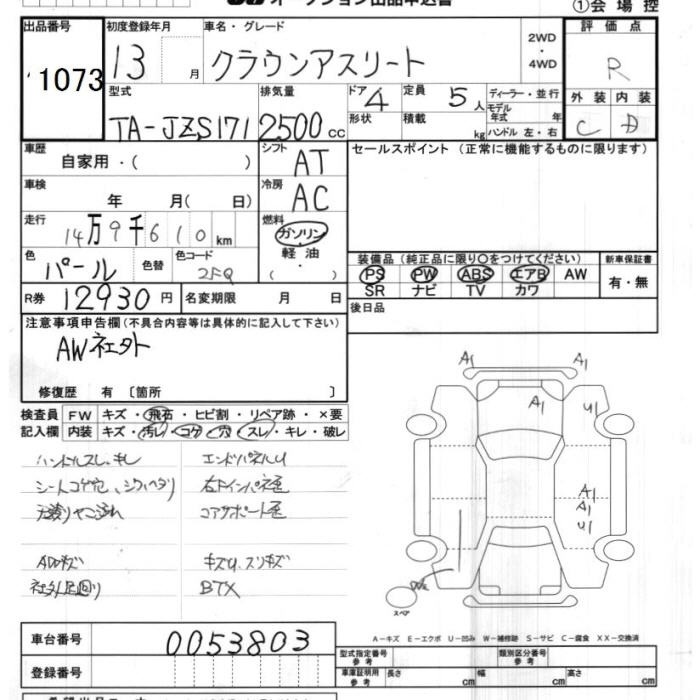 オークション出品申込書
①会場控
出品番号 1073
初度登録年月 13 月
車名・グレード クラウンアスリート
2WD ・ 4WD
評価点 R
外装 C 内装 D
型式 TA-JZS171
排気量 2500 cc
ドア 4 形状
定員 5人 積載 kg
ディーラー・並行
モデル年式 年
ハンドル 左・右
車歴 自家用・( )
シフト AT
セールスポイント (正常に機能するものに限ります)
車検 年 月( 日)
冷房 AC
走行 14万9千610km
燃料 ガソリン・軽油・( )
色 パール 色替 色コード 2FQ
装備品 (純正品に限り○をつけてください) 新車保証書
PS PW ABS エアB AW 有・無
SR ナビ TV カワ
R券 12930円 名変期限 月 日
後日品
注意事項申告欄 (不具合内容等は具体的に記入して下さい)
AW社外
修復歴 有 〔箇所 〕
検査員 FW キズ・飛石・ヒビ割・リペア跡・×要
記入欄 内装 キズ・汚レ・コゲ・穴・スレ・キレ・破レ
ハンドルスレ、キレ エンドパネルU
シートコゲ穴、シワ、ヘタリ 右下インパネ歪
コアサポート歪
AWキズ キズU、スリキズ
社外足回り BTX
A1 A1
A1 U1
A1
A1
U1
スペア
A-キズ E-エクボ U-凹み W-補修跡 S-サビ C-腐食 XX-交換済
車台番号 0053803
型式指定番号 参考 類別区分番号 参考
登録番号
車庫証明用 参考 長さ cm 幅 cm 高さ cm